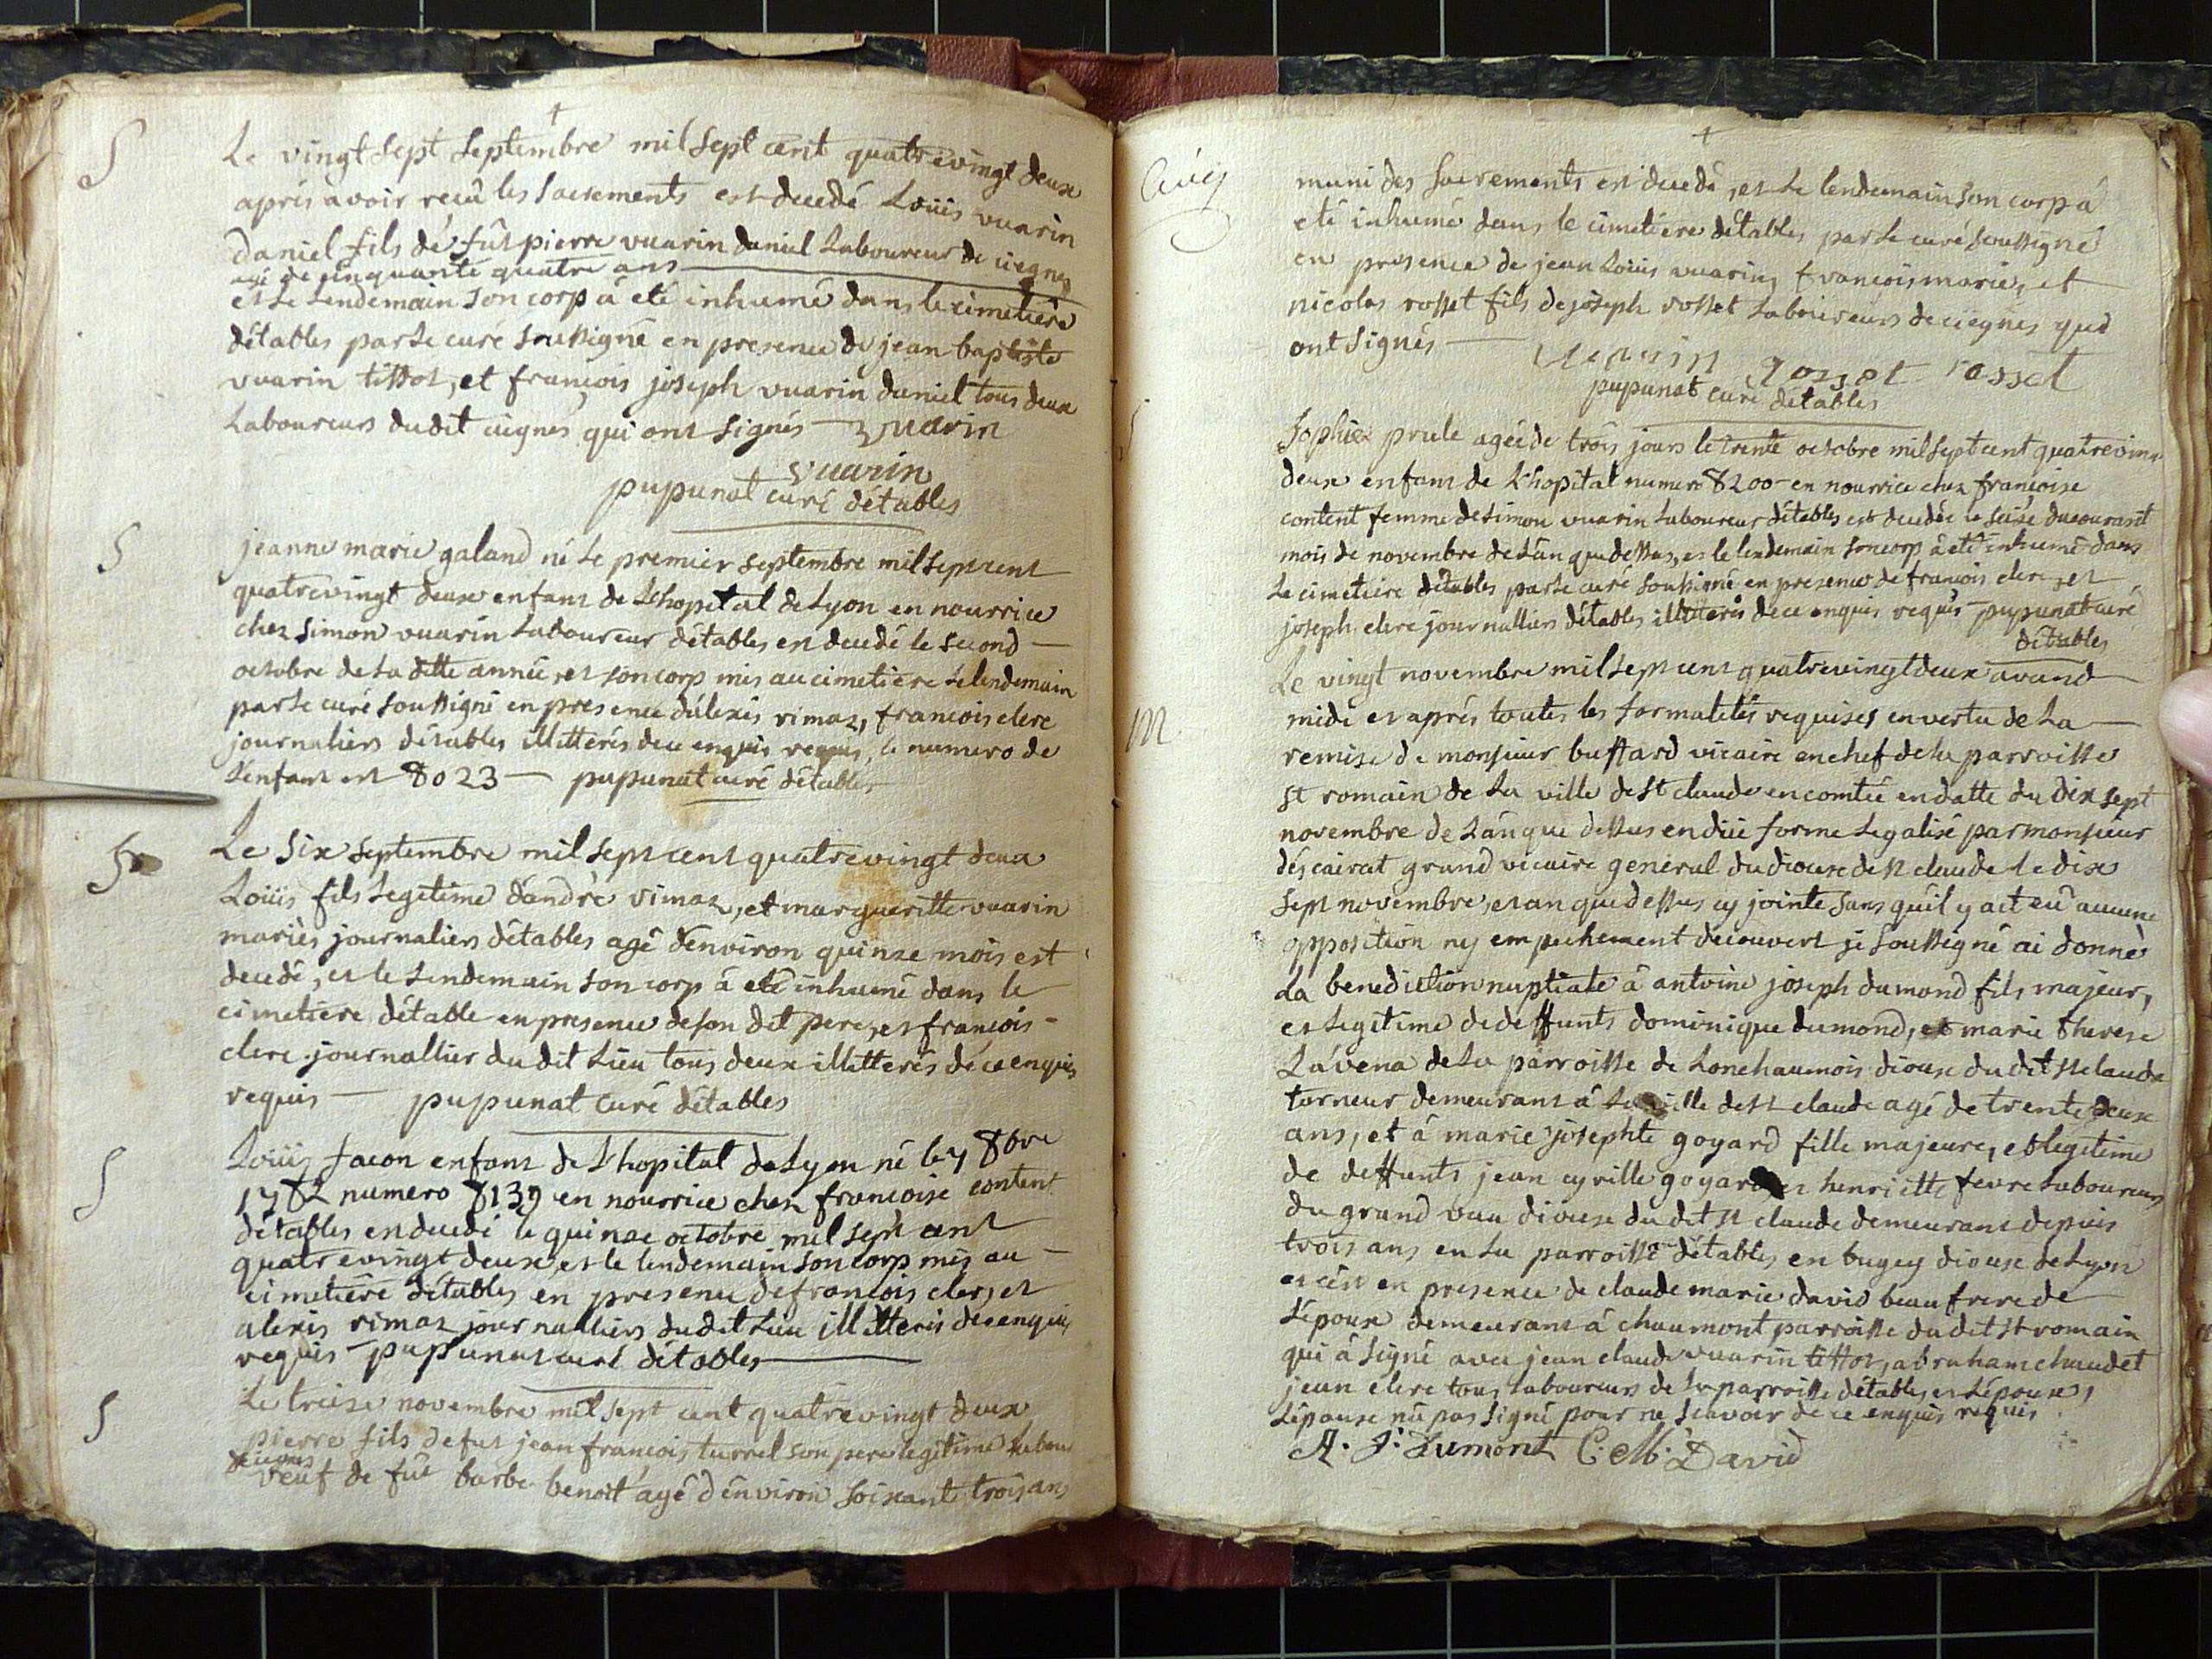 S
Le vingt sept septembre mil sept cent quatrevingt deux
aprés avoir recû les sacrements est decedé Loüis vuarin
daniel fils de fût pierre vuarin daniel Laboureur de ciegnes
agé de cinquante quatre ans
et le Lendemain son corp à eté inhumé dans le cimetiere
détables par le curé soussigné en presence de jean baptiste
vuarin tissot, et françois joseph vuarin daniel tous deux
Laboureurs dudit ciegnes qui ont signés vuarin
vuarin
pupunat curé détables
S
jeanne marie galand né le premier septembre mil sept cent
quatrevingt deux enfant de Lhopital de Lyon en nourrice
chez simon vuarin Laboureur détables est decedé le second
octobre de la ditte année, et son corp mis au cimetiere le lendemain
par le curé soussigné en presence d'alexis vimaz, francois clerc
journaliers détables illitterés de ce enquis requis, le numero de
L'enfant est 8023 pupunat curé détables
S
Le six septembre mil sept cent quatrevingt deux
Loüis fils Legitime d'andré vimaz, et margueritte vuarin
mariés journaliers détables agé d'environ quinze mois est
decedé, et le Lendemain son corp à eté inhumé dans le
cimetiere détable en presence de son dit pere, et françois
clerc journallier du dit Lieu tous deux illitterés de ce enquis
requis pupunat curé détables
S
Loüis facon enfant de L'hopital de Lyon né le 7 8bre
1782 numero 8139 en nourrice chez francoise content
détables est decedé le quinze octobre mil sept cent
quatrevingt deux, et le lendemain son corp mis au
cimetiere détables en presence de francois clerc, et
alexis vimaz journalliers du dit Lieu illitterés de ce enquis
requis pupunat curé détables
S
Le treize novembre mil sept cent quatrevingt deux
pierre fils de fut jean francois turrel son pere legitime Labou
de ciegnes
veuf de fût barbe benoit agé d'environ soixante trois ans
muni des sacrements est decedé, et le lendemain son corp à
eté inhumé dans le cimetiere détables par le curé soussigné
en presence de jean Loüis vuarin, francois marie, et
nicolas rosset fils de joseph rosset Laboureurs de ciegnes qui
ont signés vuarin rosset rosset
pupunat curé détables
Sophie prule agée de trois jours le trente octobre mil sept cent quatrevin
deux enfant de L'hopital numero 8200 en nourrice chez françoise
content femme de simon vuarin Laboureur détables est decedée le seize du courant
mois de novembre de l'an que dessus, et le lendemain son corp à eté inhumé dans
Le cimetiere détables par le curé soussigné en presence de francois clerc, et
joseph clerc journalliers détables illitterés de ce enquis requis pupunat curé
détables
M
Le vingt novembre mil sept cent quatrevingt deux avand
midi et aprés toutes les formalités requises en vertu de La
remise de monsieur bussard vicaire en chef de la parroisse
st romain de La ville de st claude en comtée en datte du dix sept
novembre de L'an que dessus en düe forme Legalisé par monsieur
grand vicaire general du diocese de st claude le dix
sept novembre, et an que dessus cy jointe sans qu'il y ait eû aucune
opposition ny empechement decouvert je soussigné ai donné
La benediction nuptiale à antoine joseph dumond fils majeur,
et Legitime de deffunts dominique dumond, et marie therese
Lavena de La parroisse de Lonchaumois diocese du dit st claude
torneur demeurant à La ville de st claude agé de trente deux
ans, et à marie josephte goyard fille majeure, et legitime
de deffunts jean cyrille goyard et henriette fevre Laboureurs
du grand vau diocese du dit st claude demeurant depuis
trois ans en La parroisse détables en bugey diocese de Lyon
et c'est en presence de claude marie david beau frere de
L'époux demeurant à chaumont parroisse du dit st romain
qui à signé avec jean claude vuarin tissot, abraham chaudet
jean clerc tous Laboureurs de la parroisse détables et L'époux,
L'épouse n'à pas signé pour ne scavoir de ce enquis requis
A. J. Dumont C. M. David